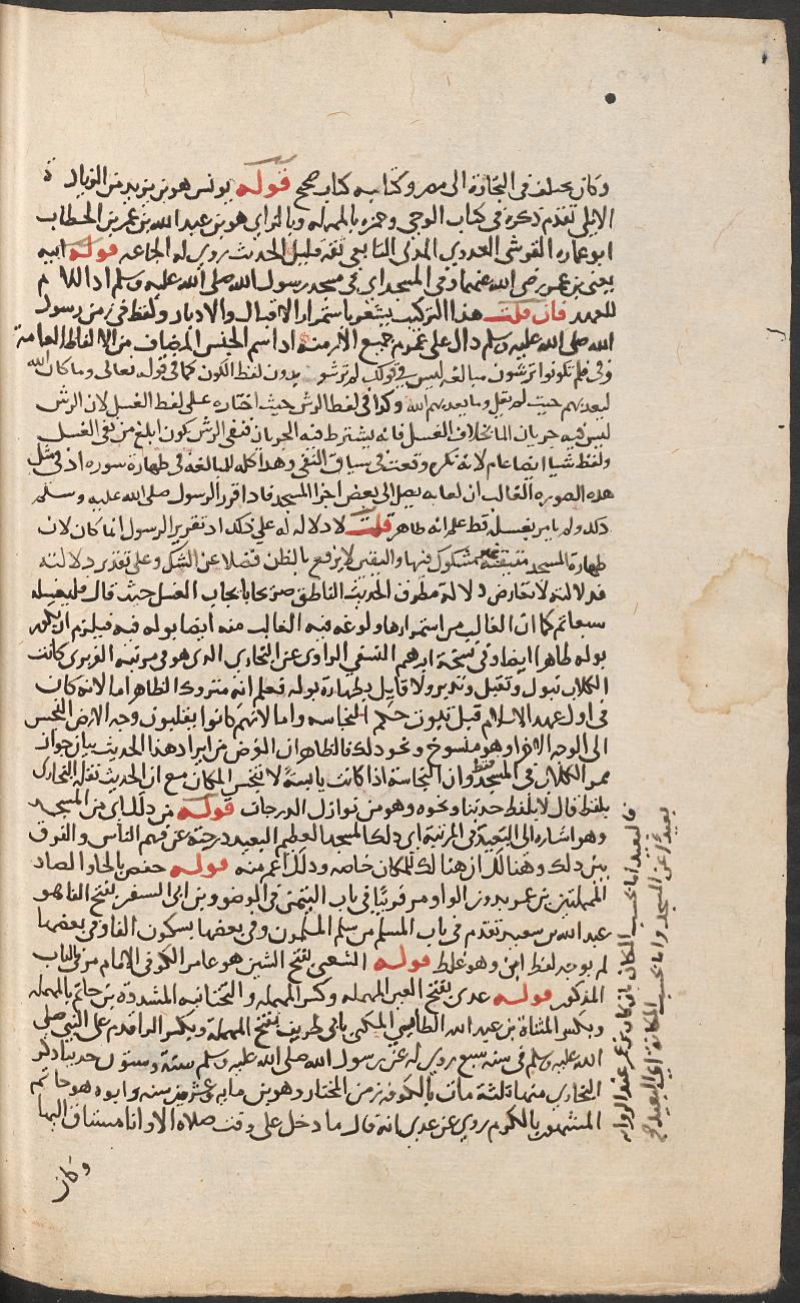 وكان يختلف في التجارة الى مصر وكتابه كتاب صحيح قوله يونس هو بن يزيد من الزيادة
الايلي تقدم ذكره في كتاب الوحي وحمزه بالمهمله وبالزاي هو بن عبد الله بن عمر بن الخطاب
ابو عماره القرشي العدوي المدني التابعي ثقة قليل الحديث روي له الجماعه قوله ابيه
يعني بن عمر رضي الله عنهما وفي المسجد اي في مسجد رسول الله صلى الله عليه وسلم اذ اللام
للعهد فان قلت هذا التركيب يشعر باستمرار الاقبال والادبار ولفظ في زمن رسول
الله صلى الله عليه وسلم دال على عموم جميع الازمنه اذ اسم الجنس المضاف من الالفاظ العامة
وفي فلم تكونوا ترشون مبالغه ليس في قولك لم ترشو بدون لفظ الكون كما في قوله تعالى وما كان الله
ليعذبهم حيث لم يقل وما يعذبهم الله وكذا في لفظ الرش حيث اختاره على لفظ الغسل لان الرش
ليس فيه جريان الما بخلاف الغسل فانه يشترط فيه الجريان فنفي الرش يكون ابلغ من نفي الغسل
ولفظ شيا ايضا عام لانه نكره وقعت في سياق النفي وهذا كله للمبالغه في طهارة سوره اذ في مثل
هذه الصوره الغالب ان لعابه يصل الى بعض اجزا المسجد فاذا قرر الرسول صلى الله عليه وسلم
ذلك ولم يامر بغسله قط علم انه طاهر قلت لا دلاله له على ذلك اذ تقرير الرسول انما كان لان
طهارة المسجد متيقنه غير مشكوك فيها واليقين لا يرفع بالظن فضلا عن الشك وعلى تقدير دلالته
فدلالته لا تعارض دلالة منطوق الحديث الناطق صريحا بايجاب الغسل حيث قال فليغسله
سبعا ثم كما ان الغالب من استمرارها ولوغه فيه الغالب منه ايضا بوله فيه فيلزم ان يكون
بوله طاهرا ايضا وفي نسخة ابرهيم النسفي الراوي عن البخاري الذي هو في مرتبة الفربري كانت
الكلاب تبول وتقبل وتدبر ولا قايل بطهارة بوله فعلم انه متروك الظاهر اما لانه كان
في اول عهد الاسلام قبل ثبوت حكم النجاسه واما لانهم كانوا يقلبون وجه الارض النجس
الى الوجه الاخر او هو منسوخ ونحو ذلك فالظاهر ان الغرض من ايراد هذا الحديث بيان جواز
ممر الكلاب في المسجد فقط وان النجاسة اذا كانت يابسة لا تنجس المكان مع ان الحديث نقله البخاري
بلفظ قال لا بلفظ حدثنا ونحوه وهو من نوازل الدرجات قوله من ذلك اي من المسجد
وهو اشاره الى البعيد في المرتبة اي ذلك المسجد العظيم البعيد درجته عن فهم الناس والفرق
بين ذلك وهنالك ان هنالك للمكان خاصه وذلك اعم منه قوله حفص بالحا والصاد
المهملتين بن عمر بدون الواو مر قريبا في باب التيمن في الوضو وبن ابي السفر بفتح الفا هو
عبد الله بن سعيد تقدم في باب المسلم من سلم المسلمون وفي بعضها بسكون الفا وفي بعضها
لم يوجد لفظ ابن وهو غلط قوله الشعبي بفتح الشين هو عامر الكوفي الامام مر في الباب
المذكور قوله عدي بفتح العين المهمله وكسر المهمله والتحتانيه المشددة بن حاتم بالمهمله
وبكسر المثناة بن عبد الله الطايي المكنى بابي طريف بفتح المهملة وبكسر الرا قدم على النبي صلى
الله عليه وسلم في سنه سبع روي له عن رسول الله صلى الله عليه وسلم ستة وستون حديثا ذكر
البخاري منها ثلثة مات بالكوفة زمن المختار وهو بن مايه وعشرين سنه وابوه هو حاتم
المشهور بالكرم روي عن عدي انه قال ما دخل علي وقت صلاة الا وانا مشتاق اليها
وكان
فالبعيد اما بحسب المكان بان كان بن عمر عند الرواية
بعيدا عن المسجد واما بحسب المكانة اي البعيد